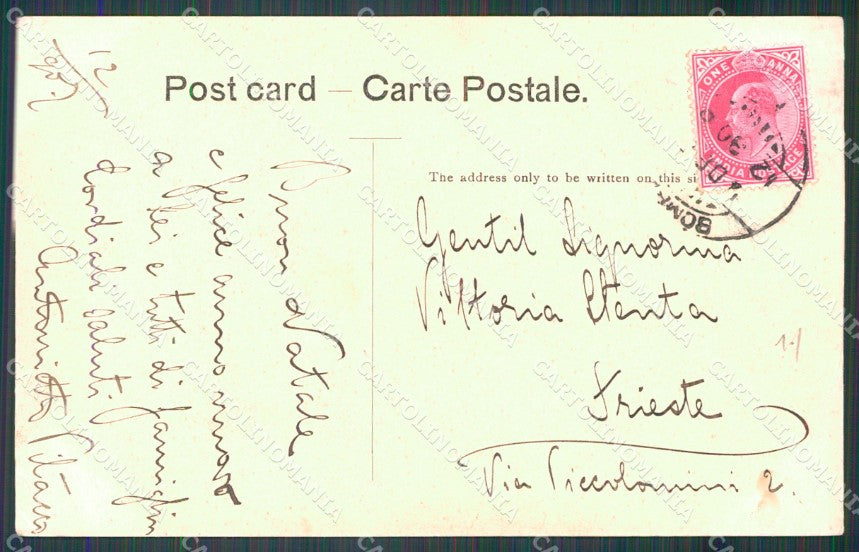 Post card — Carte Postale.
The address only to be written on this si
ONE ANNA
INDIA POSTAGE
BOM
Gentil Signorina
Vittoria Stenta
Trieste
Via Piccolomini 2.
Buon Natale
e felice anno nuovo
a Lei e tutti di famiglia
Cordiali saluti
Antonietta
12
CARTOLINOMANIA